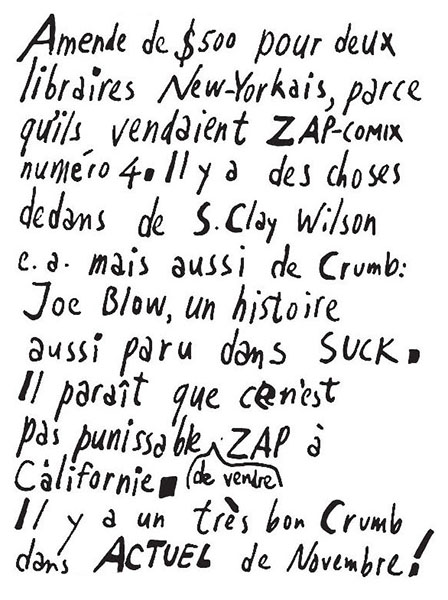 Amende de $500 pour deux
libraires New-Yorkais, parce
qu'ils vendaient ZAP-COMIX
numéro 4. Il y a des choses
dedans de S. Clay Wilson
e.a. mais aussi de Crumb:
Joe Blow, un histoire
aussi paru dans SUCK.
Il paraît que ce n'est
pas punissable ZAP à
Californie. (de vendre)
Il y a un très bon Crumb
dans ACTUEL de Novembre!